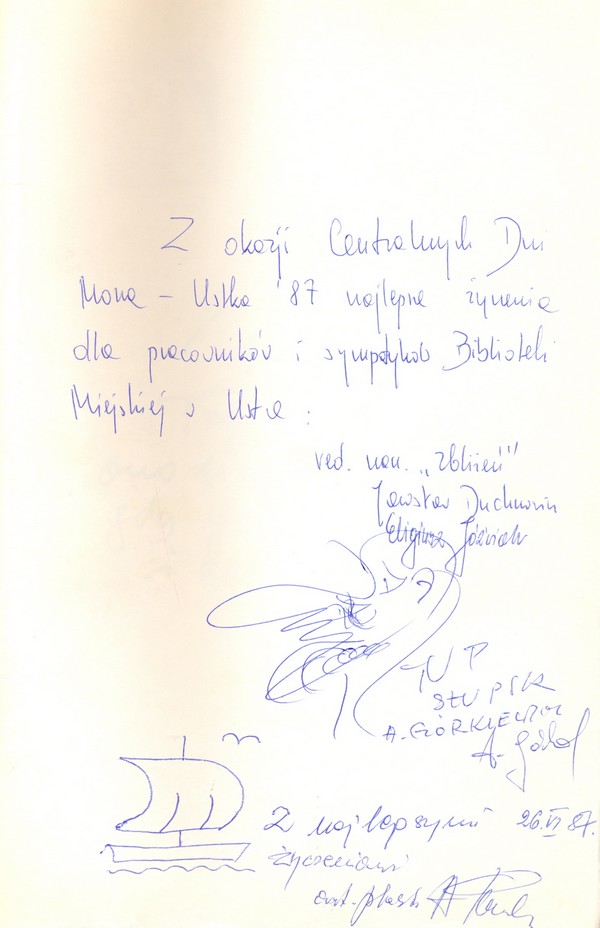 Z okazji Centralnych Dni
Morza - Ustka '87 najlepsze życzenia
dla pracowników i sympatyków Biblioteki
Miejskiej w Ustce :
red. nacz. „Zbliżeń”
Jarosław
Eligiusz Jóźwiak
TUP
SŁUPSK
A.
A.
Z najlepszymi 26.VI 87.
życzeniami
art. plast. A